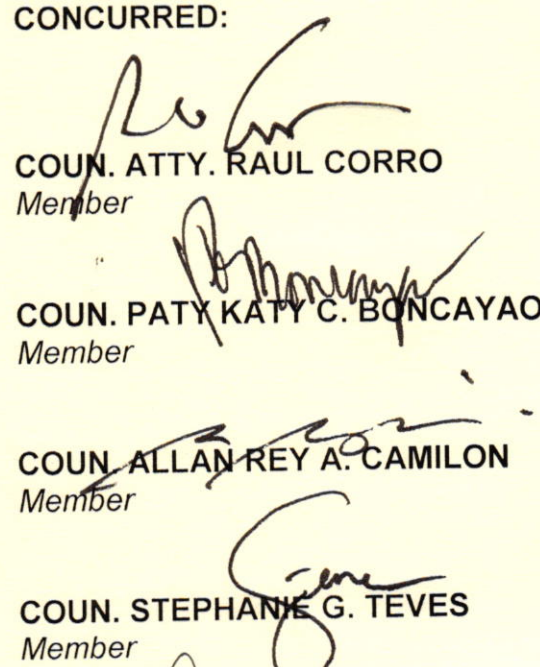 CONCURRED:
COUN. ATTY. RAUL CORRO
Member
COUN. PATY KATY C. BONCAYAO
Member
COUN. ALLAN REY A. CAMILON
Member
COUN. STEPHANIE G. TEVES
Member